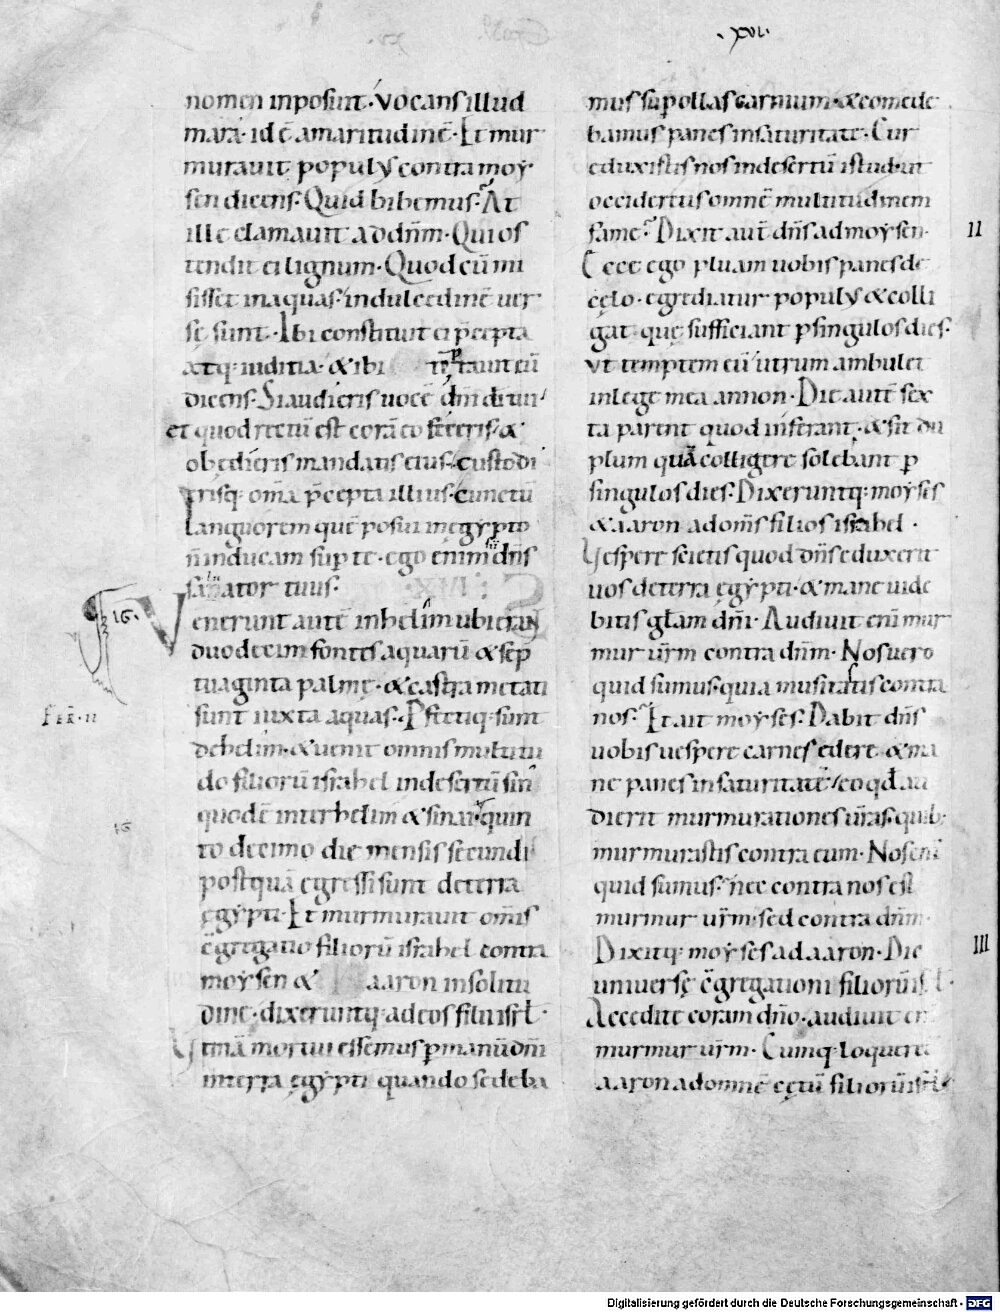 .xvi.
nomen inposuit. vocans illud
mara. id ē amaritudinē. Et mur
muravit populus contra moy
sen dicens. Quid bibemus. At
ille clamavit ad dñm. Qui os
tendit ei lignum. Quod cū mi
sisset in aquas. in dulcedinē ver
sę sunt. Ibi constituit ei p̄cepta
atq; iuditia. & ibi tēptavit eū
dicens. Si audieris vocē dn̄i di tui
et quod rectū est corā eo feceris. &
obedieris mandatis eius. custodi
risq; om̄a p̄cepta illius. cunctū
languorem quē posui in egypto
n̄ inducam sup te. ego enim dn̄s
sanator tuus.
16. Venerunt autē in helim ubi erant
duodecim fontes aquarū & sep
tuaginta palmę. & castra metati
sunt iuxta aquas. Pfectiq; sunt
de helim. & venit omnis multitu
do filiorū israhel in desertū sin
quod ē inter helim & sinai. quin
16
to decimo die mensis secundi
postquā egressi sunt de terra
ęgypti. Et murmuravit om̄is
c̄gregatio filiorū israhel contra
moysen & aaron in solitu
dine. dixeruntq; ad eos filii isrl.
Utinā mortui essemus p manū dn̄i
in terra ęgypti quando sedeba
mus sup ollas carnium. & comede
bamus panes in saturitate. Cur
eduxistis nos in desertū istud. ut
occideretis omnē multitudinem
fame. Dixit aut̄ dn̄s ad moysen.
II
Ecce ego pluam vobis panes de
cęlo. egrediatur populus & colli
gat quę sufficiunt p singulos dies.
ut temptem eū utrum ambulet
in lege mea an non. Die autē sex
ta parent quod inferant. & sit du
plum quā colligere solebant p
singulos dies. Dixeruntq; moyses
& aaron ad om̄s filios israhel.
Vespere scietis quod dn̄s eduxerit
vos de terra ęgypti. & mane vide
bitis glam dn̄i. Audivit enī mur
mur vr̄m contra dn̄m. Nos vero
quid sumus. quia musitatis contra
nos. Et ait moyses. Dabit dn̄s
vobis vespere carnes edere & ma
ne panes in saturitate. eo qd au
dierit murmurationes vr̄as. quib;
murmurastis contra eum. Nos enī
quid sumus. nec contra nos est
murmur vr̄m. sed contra dn̄m.
Dixitq; moyses ad aaron. Dic
III
universę c̄gregationi filiorū isrl.
Accedite coram dn̄o. audivit enī
murmur vr̄m. Cumq; loqueret̄
aaron ad omnē cętū filiorū isrl.
Digitalisierung gefördert durch die Deutsche Forschungsgemeinschaft - DFG